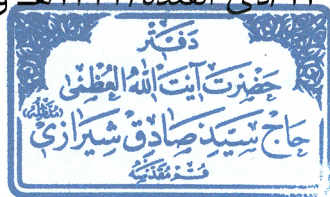 دفتر
حضرت آیت الله العظمی
حاج سید صادق شیرازی (مدظله)
قم مقدسه